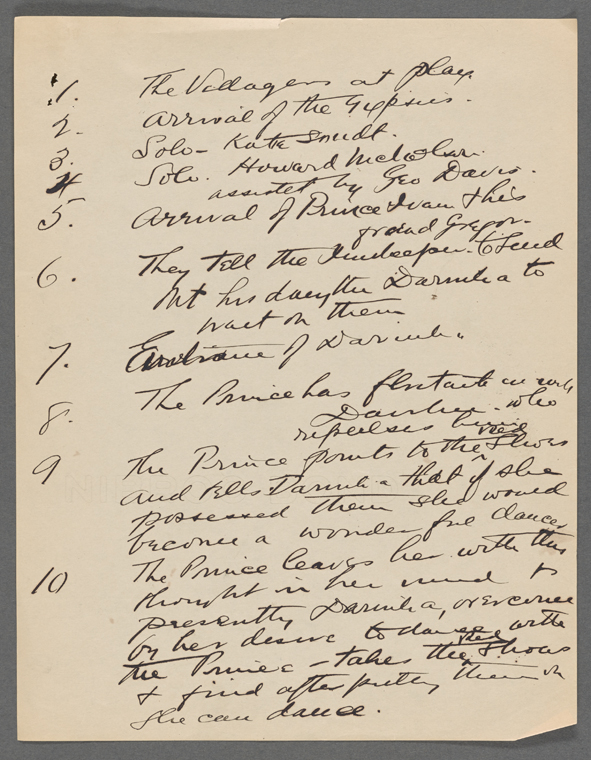 1. The Villagers at play.
2. Arrival of the Gypsies.
3. Solo - Kate Smidt.
4 Solo. Howard Nicholson.
assisted by Geo Davis.
5. Arrival of Prince Ivan & his
friend Gregor.
6. They tell the Innkeeper to send
his daughter Darinka to
wait on them
7. Entrance of Darinka
8. The Prince has flirtation with
Darinka - who
repulses him
9 The Prince points to the red Shoes
and tells Darinka that if she
possessed them she would
become a wonderful dancer
10 The Prince leaves her with this
thought in her mind &
presently Darinka, overcome
by her desire to dance with
the Prince - takes the red Shoes
& find after putting them on
she can dance.